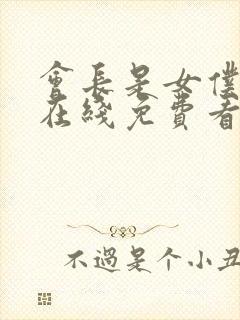 會長是女僕
在綫免費看
不過是个小丑